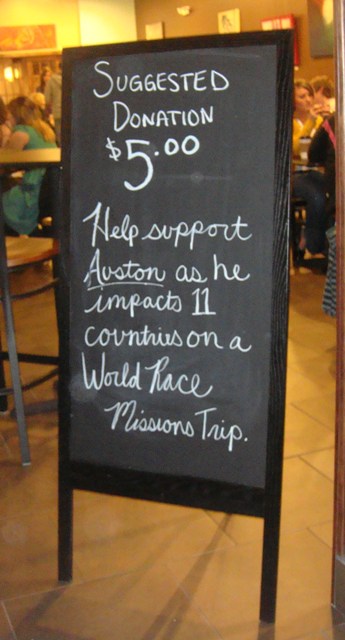 SUGGESTED
DONATION
$5.00
Help support
Auston as he
impacts 11
countries on a
World Race
Missions Trip.